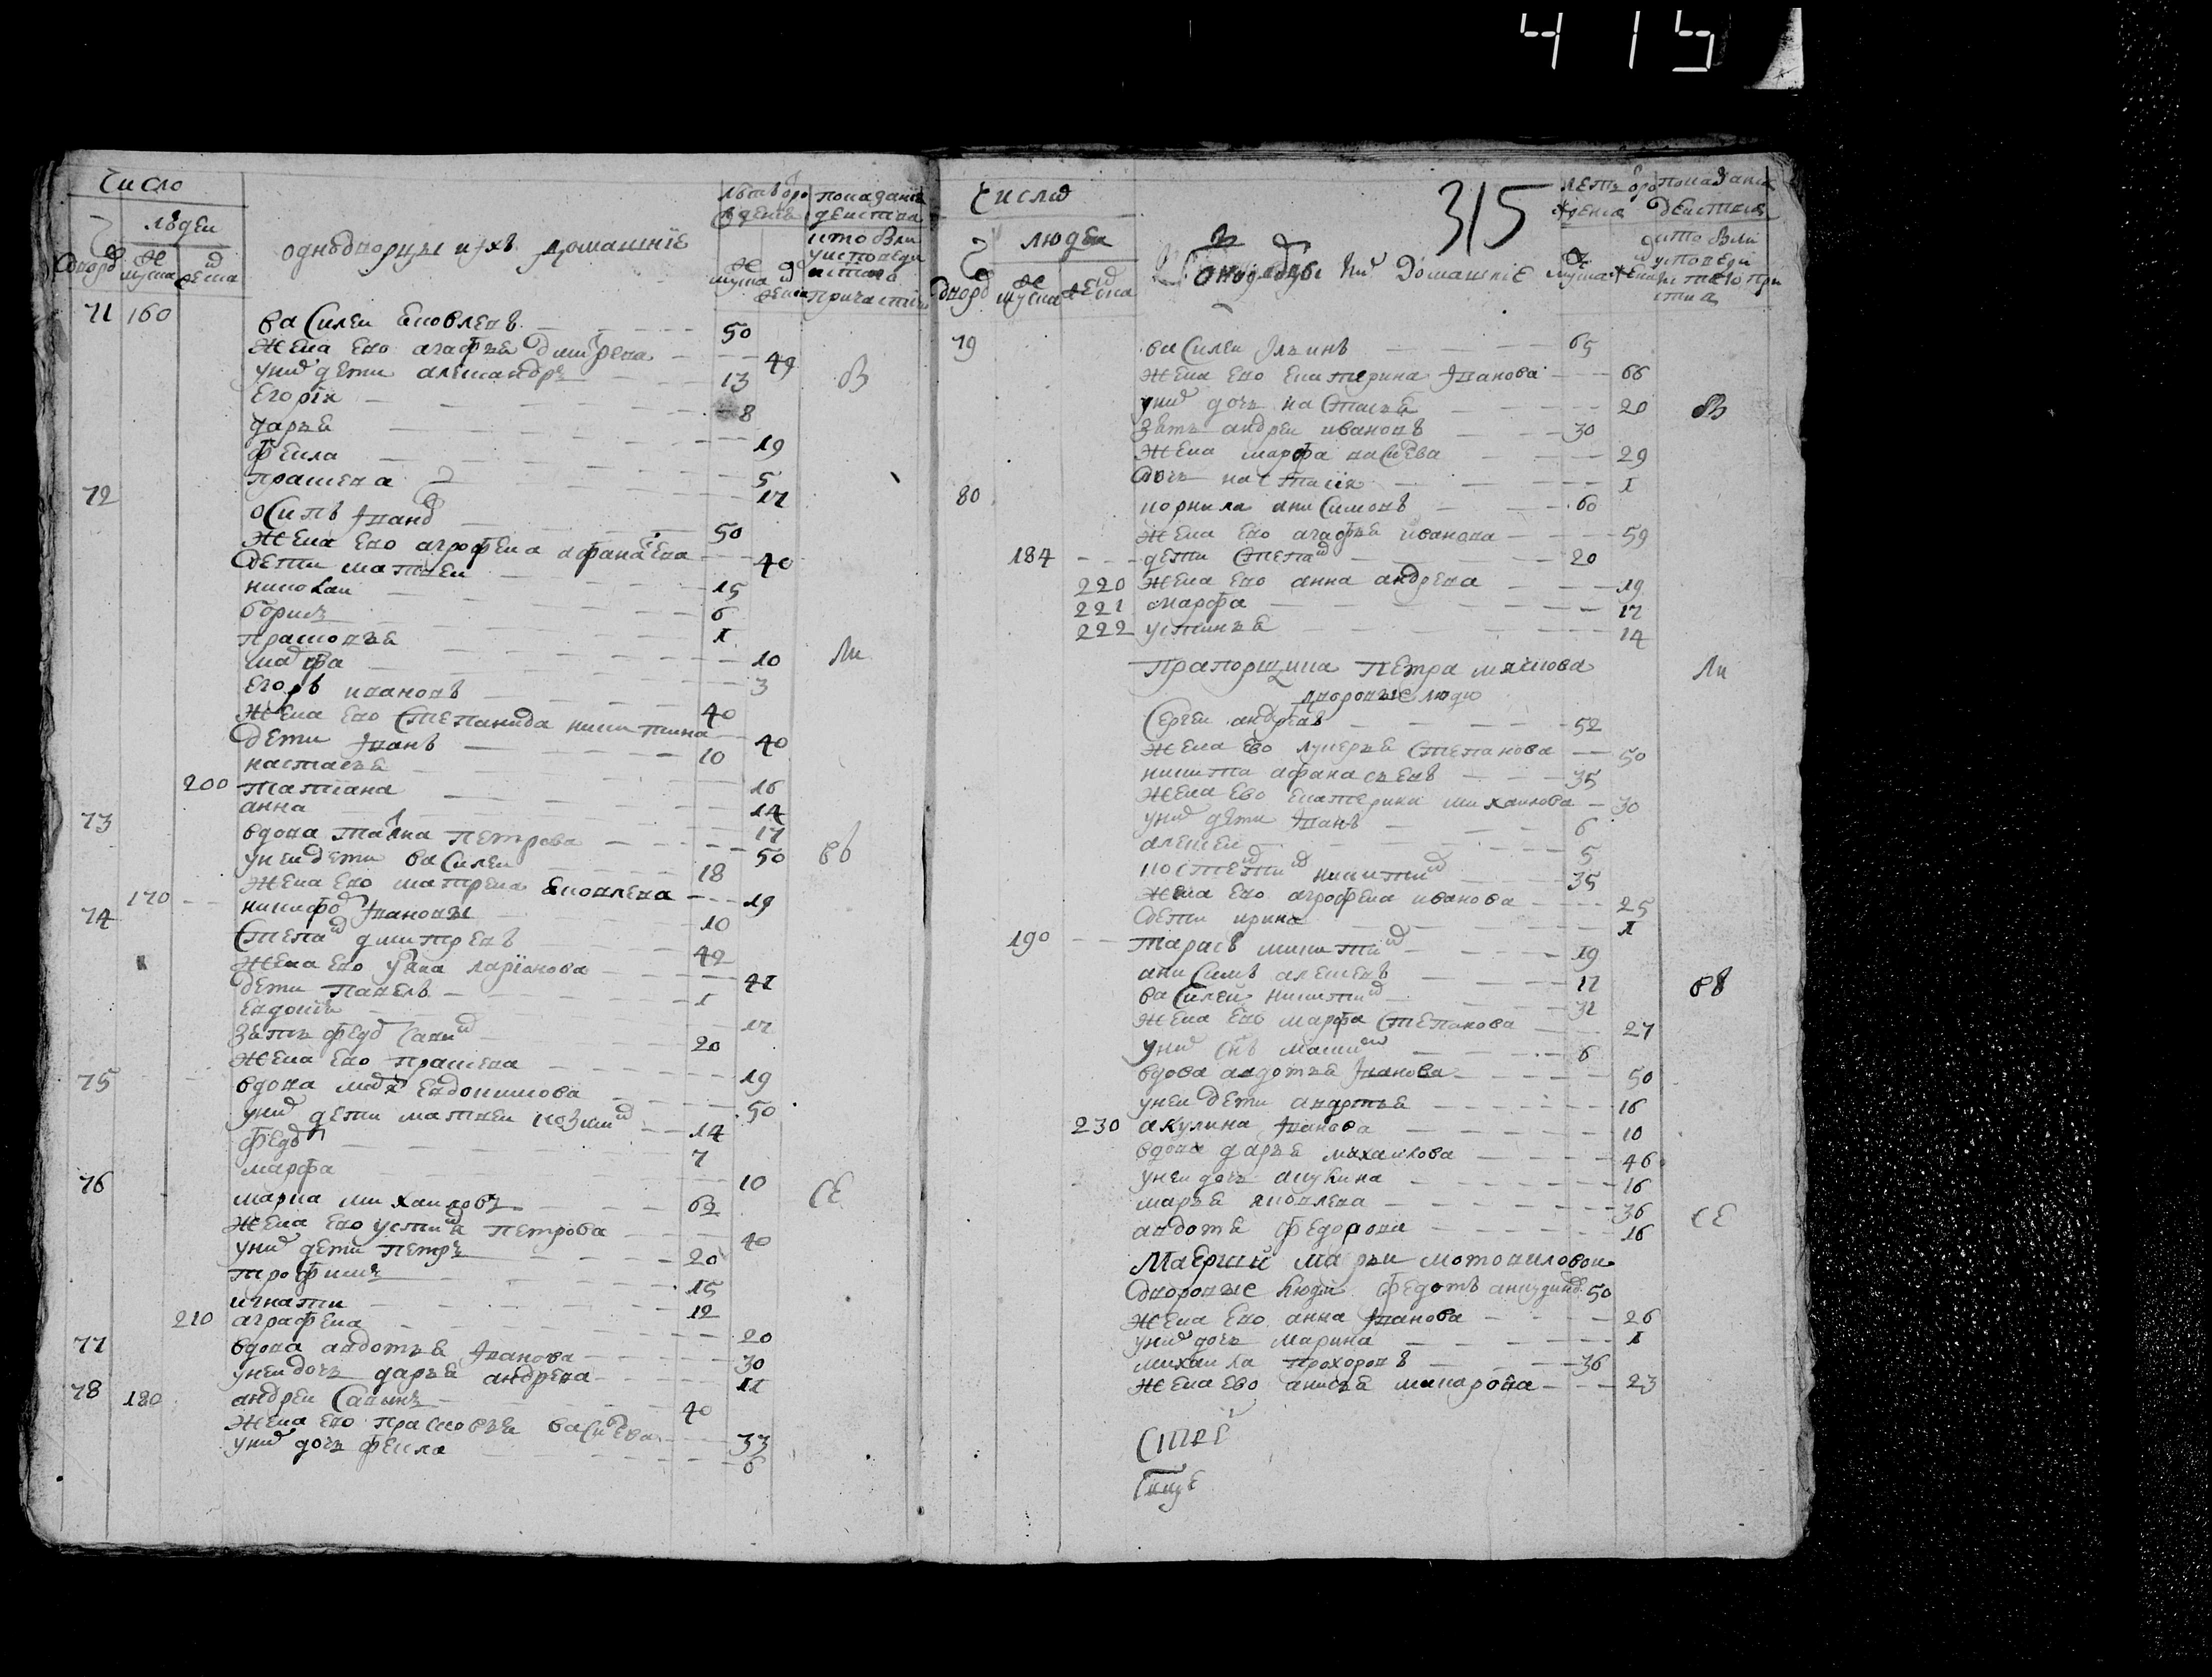 415
Число
людеи
дворо
мужеска
женска
однодворцы и ихъ домашнїе
лѣтъ от рожденїя
мужеска
женска
показанїе деиства кто был у исповеди и с[вятого] причастия
71 160 василеи яковлевъ 50
жена ево агафья дмитрева 49
у них дети александръ 13 вз
егоръ 8
дарья 19
фекла 5
прасковья 17
72 осипъ Iванов 50
жена ево агрофена афанасева 40
дети матвеи 15
николаи 6
борисъ 1
прасковья 10 ли
марфа 3
егоръ ивановъ 40
жена ево степанида никитина 40
дети Iванъ 10
настасья 16
200 татиана 14
анна 17
73 вдова татиана петрова 50 въ
у неи дети василеи 18
жена ево матрена яковлева 19
170 никифор Iвановъ 10
74 степан дмитревъ 42
жена ево улiана ларїанова 41
дети павелъ 1
евдокия 17
зять федор савин 20
жена ево прасковья 19
75 вдова мавра евдокимова 50
у них дети матвеи козмин 14
федор 7
марфа 10
76 марка михаиловъ 62 се
жена ево устинья петрова 40
у них дети петръ 20
трофимъ 15
игнати 12
210 аграфена 20
77 вдова авдотья Iванова 30
у неи дочь дарья андрева 11
78 180 андреи савинъ 40
жена ево прасковья василева 33
у них дочь фекла 6
315
Число
людеи
дворо
мужеска
женска
однодворцы и их домашнїе
летъ от рожденїя
мужеска
женска
показанїе деиства кто был у исповеди и с[вятого] причастия
79 василеи Iльинъ 65
жена ево екатерина Iванова 66
у них дочь настасья 20 вз
зять андреи ивановъ 30
жена марфа василева 29
дочь настасия 1
80 корнила анисимовъ 60
жена ево агафья иванова 59
184 дети степан 20
220 жена ево анна андрева 19
221 марфа 17
222 устинья 14
прапорщика петра мякова ли
дворовые люди
сергеи андреевъ 52
жена ево лукерья степанова 50
никита афанасьевъ 35
жена ево екатерина михаилова 30
у них дети Iванъ 6
алексеи 5
костентин никитин 35
жена ево агрофена иванова 25
дети ирина 1
190 тарасъ никитин 19
анисимъ алексевъ 17 въ
василеи никитин 31
жена ево марфа степанова 27
у них снъ максим 6
вдова авдотья Iванова 50
у неи дети авдотья 16
230 акулина Iванова 10
вдова дарья михаилова 46
у неи дочь акулина 16
марья яковлева 36 се
авдотя федорова 16
Маерши марьи мотовиловои
дворовые люди федотъ анкудинов 50
жена ево анна Iванова 26
у них дочь марина 1
михаила прохоровъ 36
жена ево анисья макарова 23